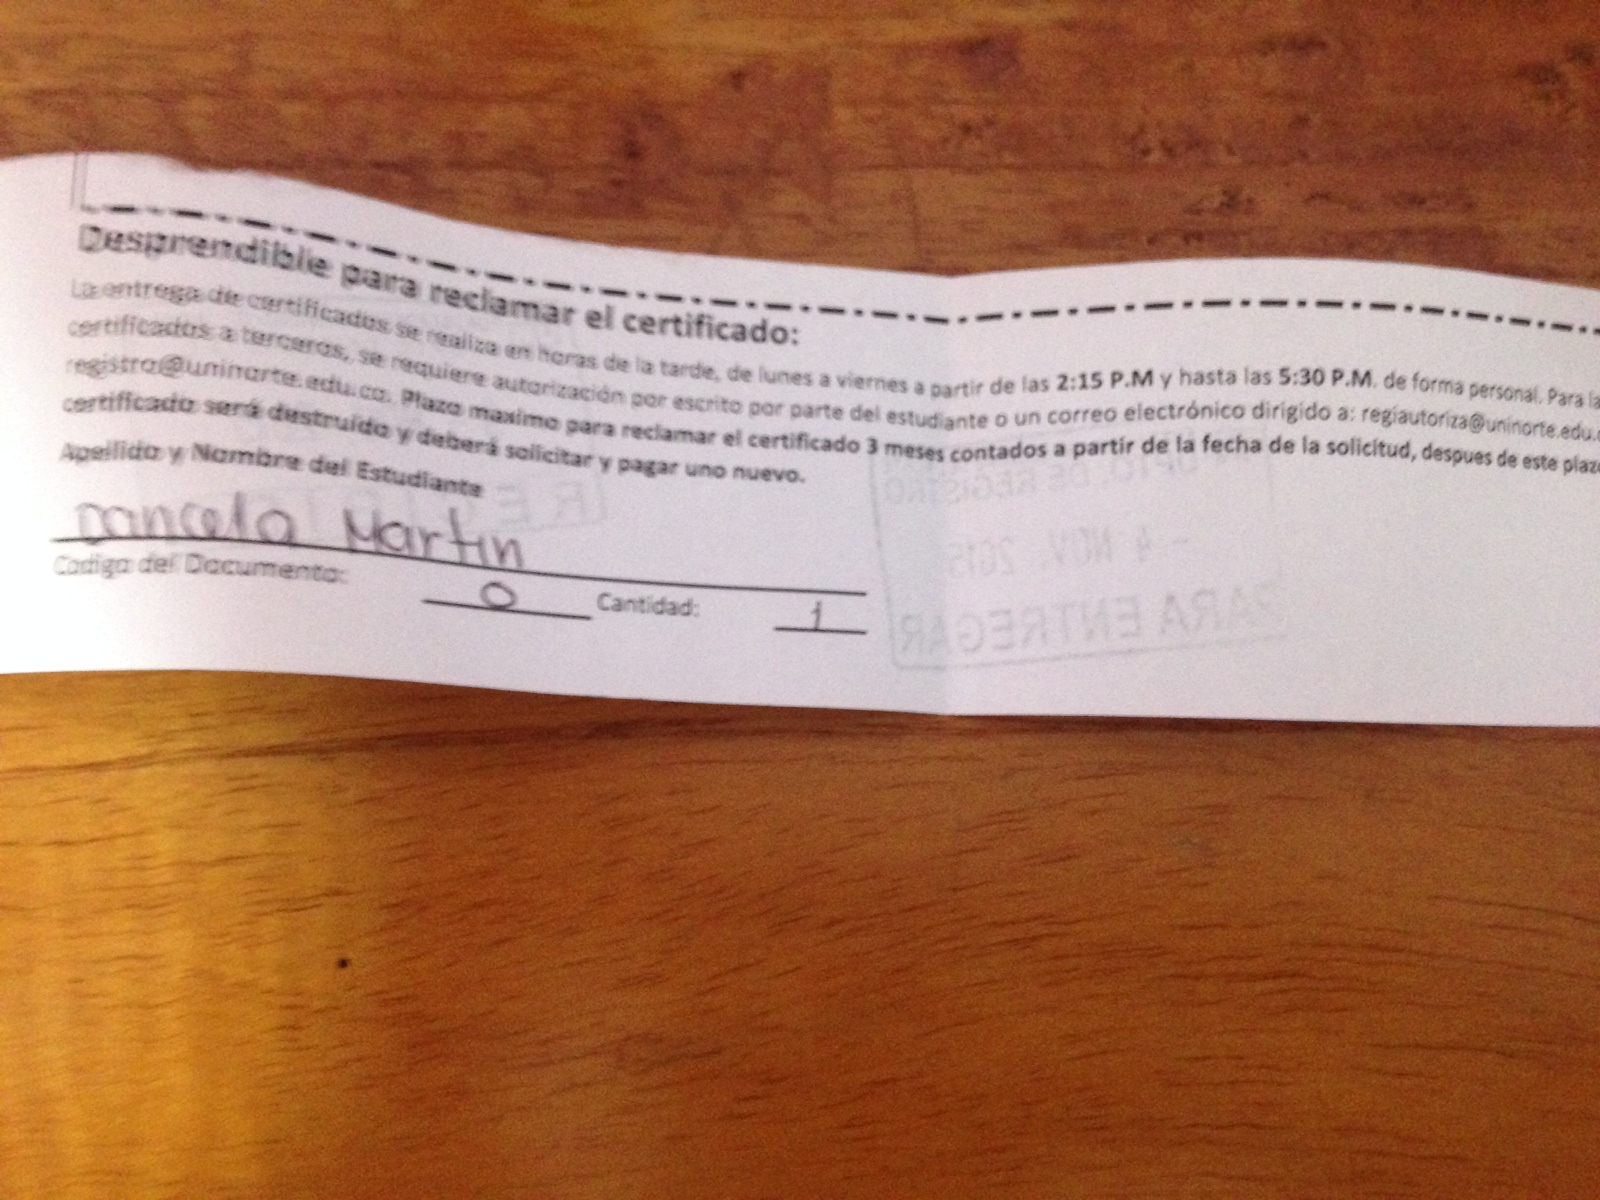 Desprendible para reclamar el certificado:
La entrega de certificados se realiza en horas de la tarde, de lunes a viernes a partir de las 2:15 P.M y hasta las 5:30 P.M. de forma personal. Para la
certificados a terceros, se requiere autorización por escrito por parte del estudiante o un correo electrónico dirigido a: regiautoriza@uninorte.edu.
registro@uninorte.edu.co. Plazo maximo para reclamar el certificado 3 meses contados a partir de la fecha de la solicitud, despues de este plazo
certificado será destruido y deberá solicitar y pagar uno nuevo.
Apellido y Nombre del Estudiante
Martin
Codigo del Documento: 0 Cantidad: 1
DPTO. DE REGISTRO
- 4 NOV. 2015
PARA ENTREGAR